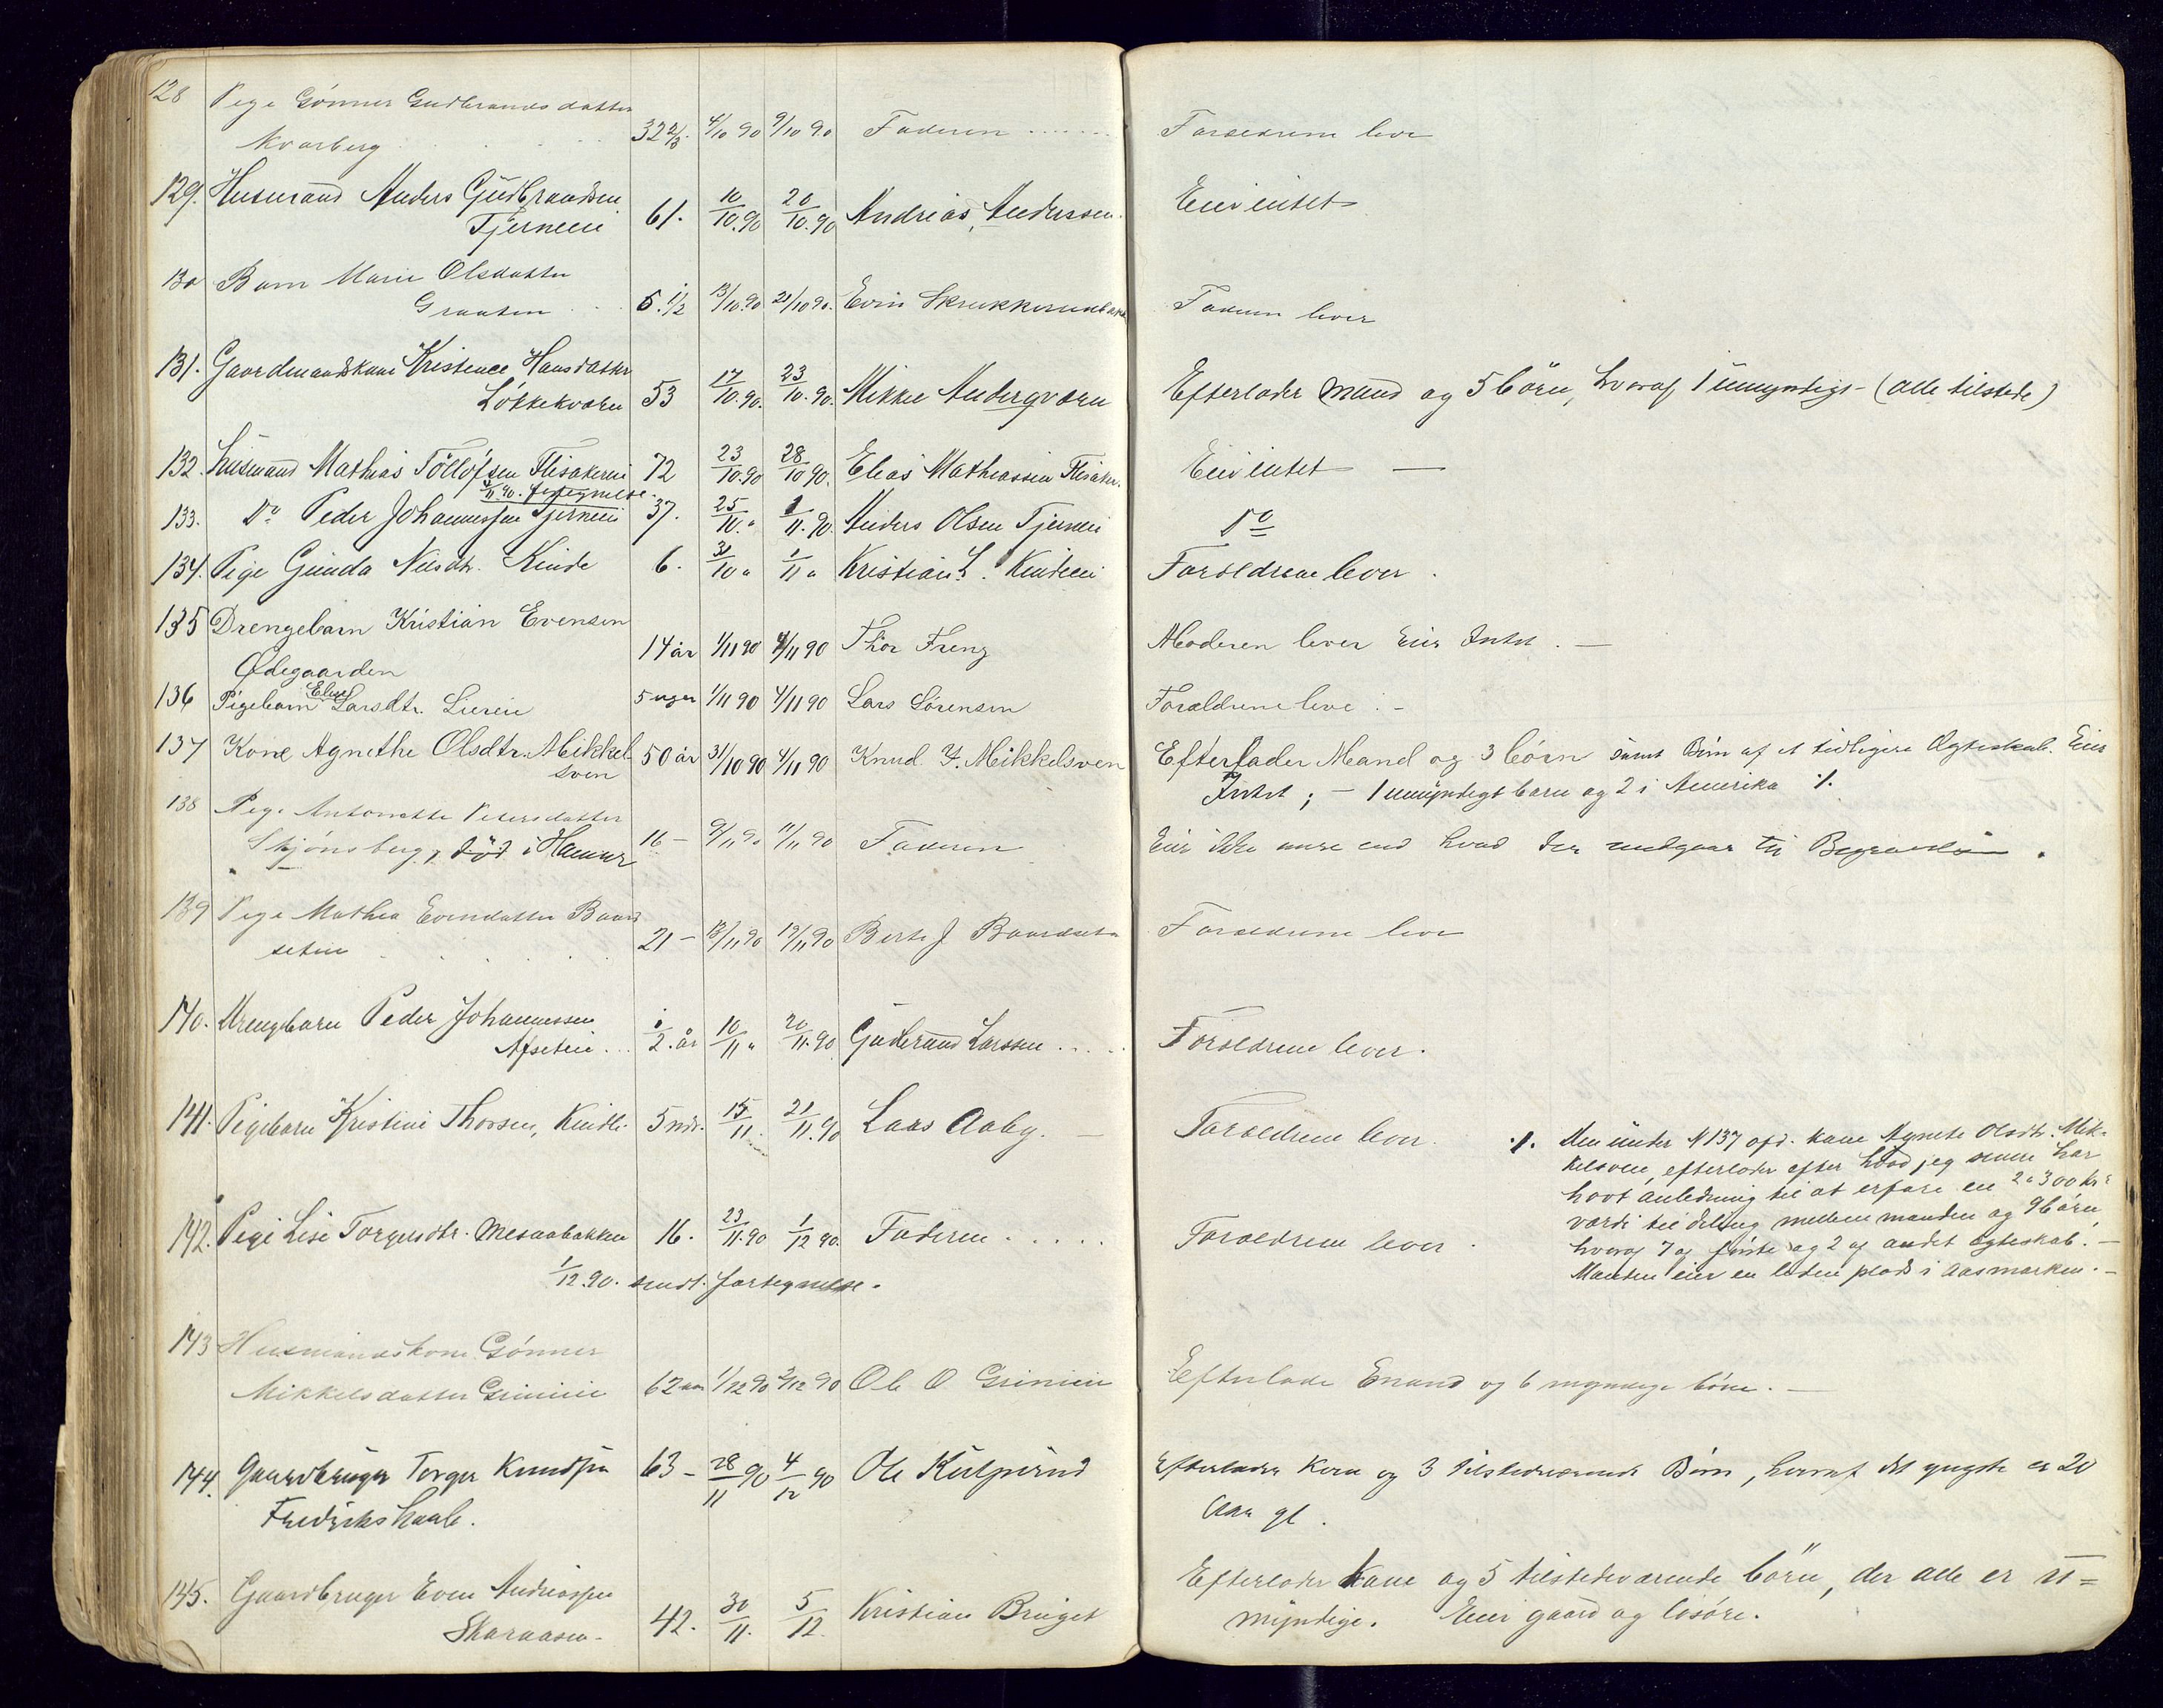 128 Pige Gønner Gudbrandsdatter
Kvarberg 32 2/3. 4/10 90 9/10 90 Faderen Forældrene leve
129. Husmand Anders Gudbrandsen
Tjerneeie 61. 10/10.90 20/10.90 Andreas Andersen. Eier intet
130 Barn Marie Olsdatter
Graaten 5.1/2 13/10.90 21/10 90. Even Faderen lever
131. Gaardmandskone Kristence Hansdatter
Løkkekværn 53 17/10.90. 23/10.90. Mikkel Andergværn Efterlader Mand og 5 børn, hvoraf 1 umyndigt - (alle tilstede)
132. Husmand Mathias Tollofsen Flisakereie 72 23/10.90 28/10 90. Elias Mathiassen Flisaker. Eier intet —
3/11.90. fortegnelse.
133. Do Peder Johannessen Tjerneeie 37. 25/10. " 1/11.90. Anders Olsen Tjerneeie Do
134. Pige Gunda Nilsdtr. Kinde 6. 30/10 " 1/11 " Kristian L. Kindeeie Forældrene lever.
135 Drengebarn Kristian Evensen
Ødegaarden 14 år 1/11 90 4/11 90 Thor Freng Moderen lever Eier Intet. —
136 Pigebarn Eline Larsdtr. Lieneie 5 uger 1/11 90 4/11 90 Lars Sørensen Forældrene leve. -
137 Kone Agnethe Olsdtr. Mikkel-
sven 50 år 31/10 90 4/11 90 Knud Mikkelsven Efterlader Mand og 3 børn samt Børn af et tidligere Ægteskab. Eier
Intet; - 1 umyndigt barn og 2 i Amerika ./.
138 Pige Antonette Petersdatter
Skjønsberg, død i Hamar 16 - 9/11 90 11/11 90 Faderen Eier ikke mere end hvad der medgaar til Begravelse.
139 Pige Mathea Evensdatter Baard
seteie 21 - 13/11 90 19/11 90 Berte J Baardset Forældrene leve
140. Drengebarn Peder Johannessen
Afseteie 1/2 år 10/11 " 20/11.90 Gudbrand Larssen Forældrene lever.
141. Pigebarn Kristine Thorsen, Kindli 5 mdr. 15/11. 21/11.90 Lars Aaby. — Forældrene lever.
./. Den under N 137 opf. kone Agnete Olsdtr. Mik-
kelsveie, efterlader efter hvad jeg senere har
havt anledning til at erfare en 2 a 300 kr
værdi til deling mellem manden og 9 børn,
hvoraf 7 af første og 2 af andet ægteskab. —
Manden eier en liden plads i Aasmarken. —
142. Pige Lise Torgersdtr. Mesnabakken 16. 23/11.90 1/12 90. Faderen Forældrene lever.
1/12.90. sendt fortegnelse.
143 Husmandskone Gønner
Mikkelsdatter Grinieie 62 aar 1/12 90 3/12 90 Ole O Grinieie Efterlader Emand og 6 myndige børn. —
144. Gaardbruger Torger Knudsen
Fredrikshaab. 63 - 28/11 90 4/12 90 Ole Efterlader Kone og 3 tilstedeværende Børn, hvoraf det yngste er 20
Aar gl.
145. Gaardbruger Even Andreassen
Skaraasen 42. 30/11. 5/12. Kristian Bruget Efterlader kone og 5 tilstedeværende børn, der alle er u=
myndige. Eier gaard og løsøre.